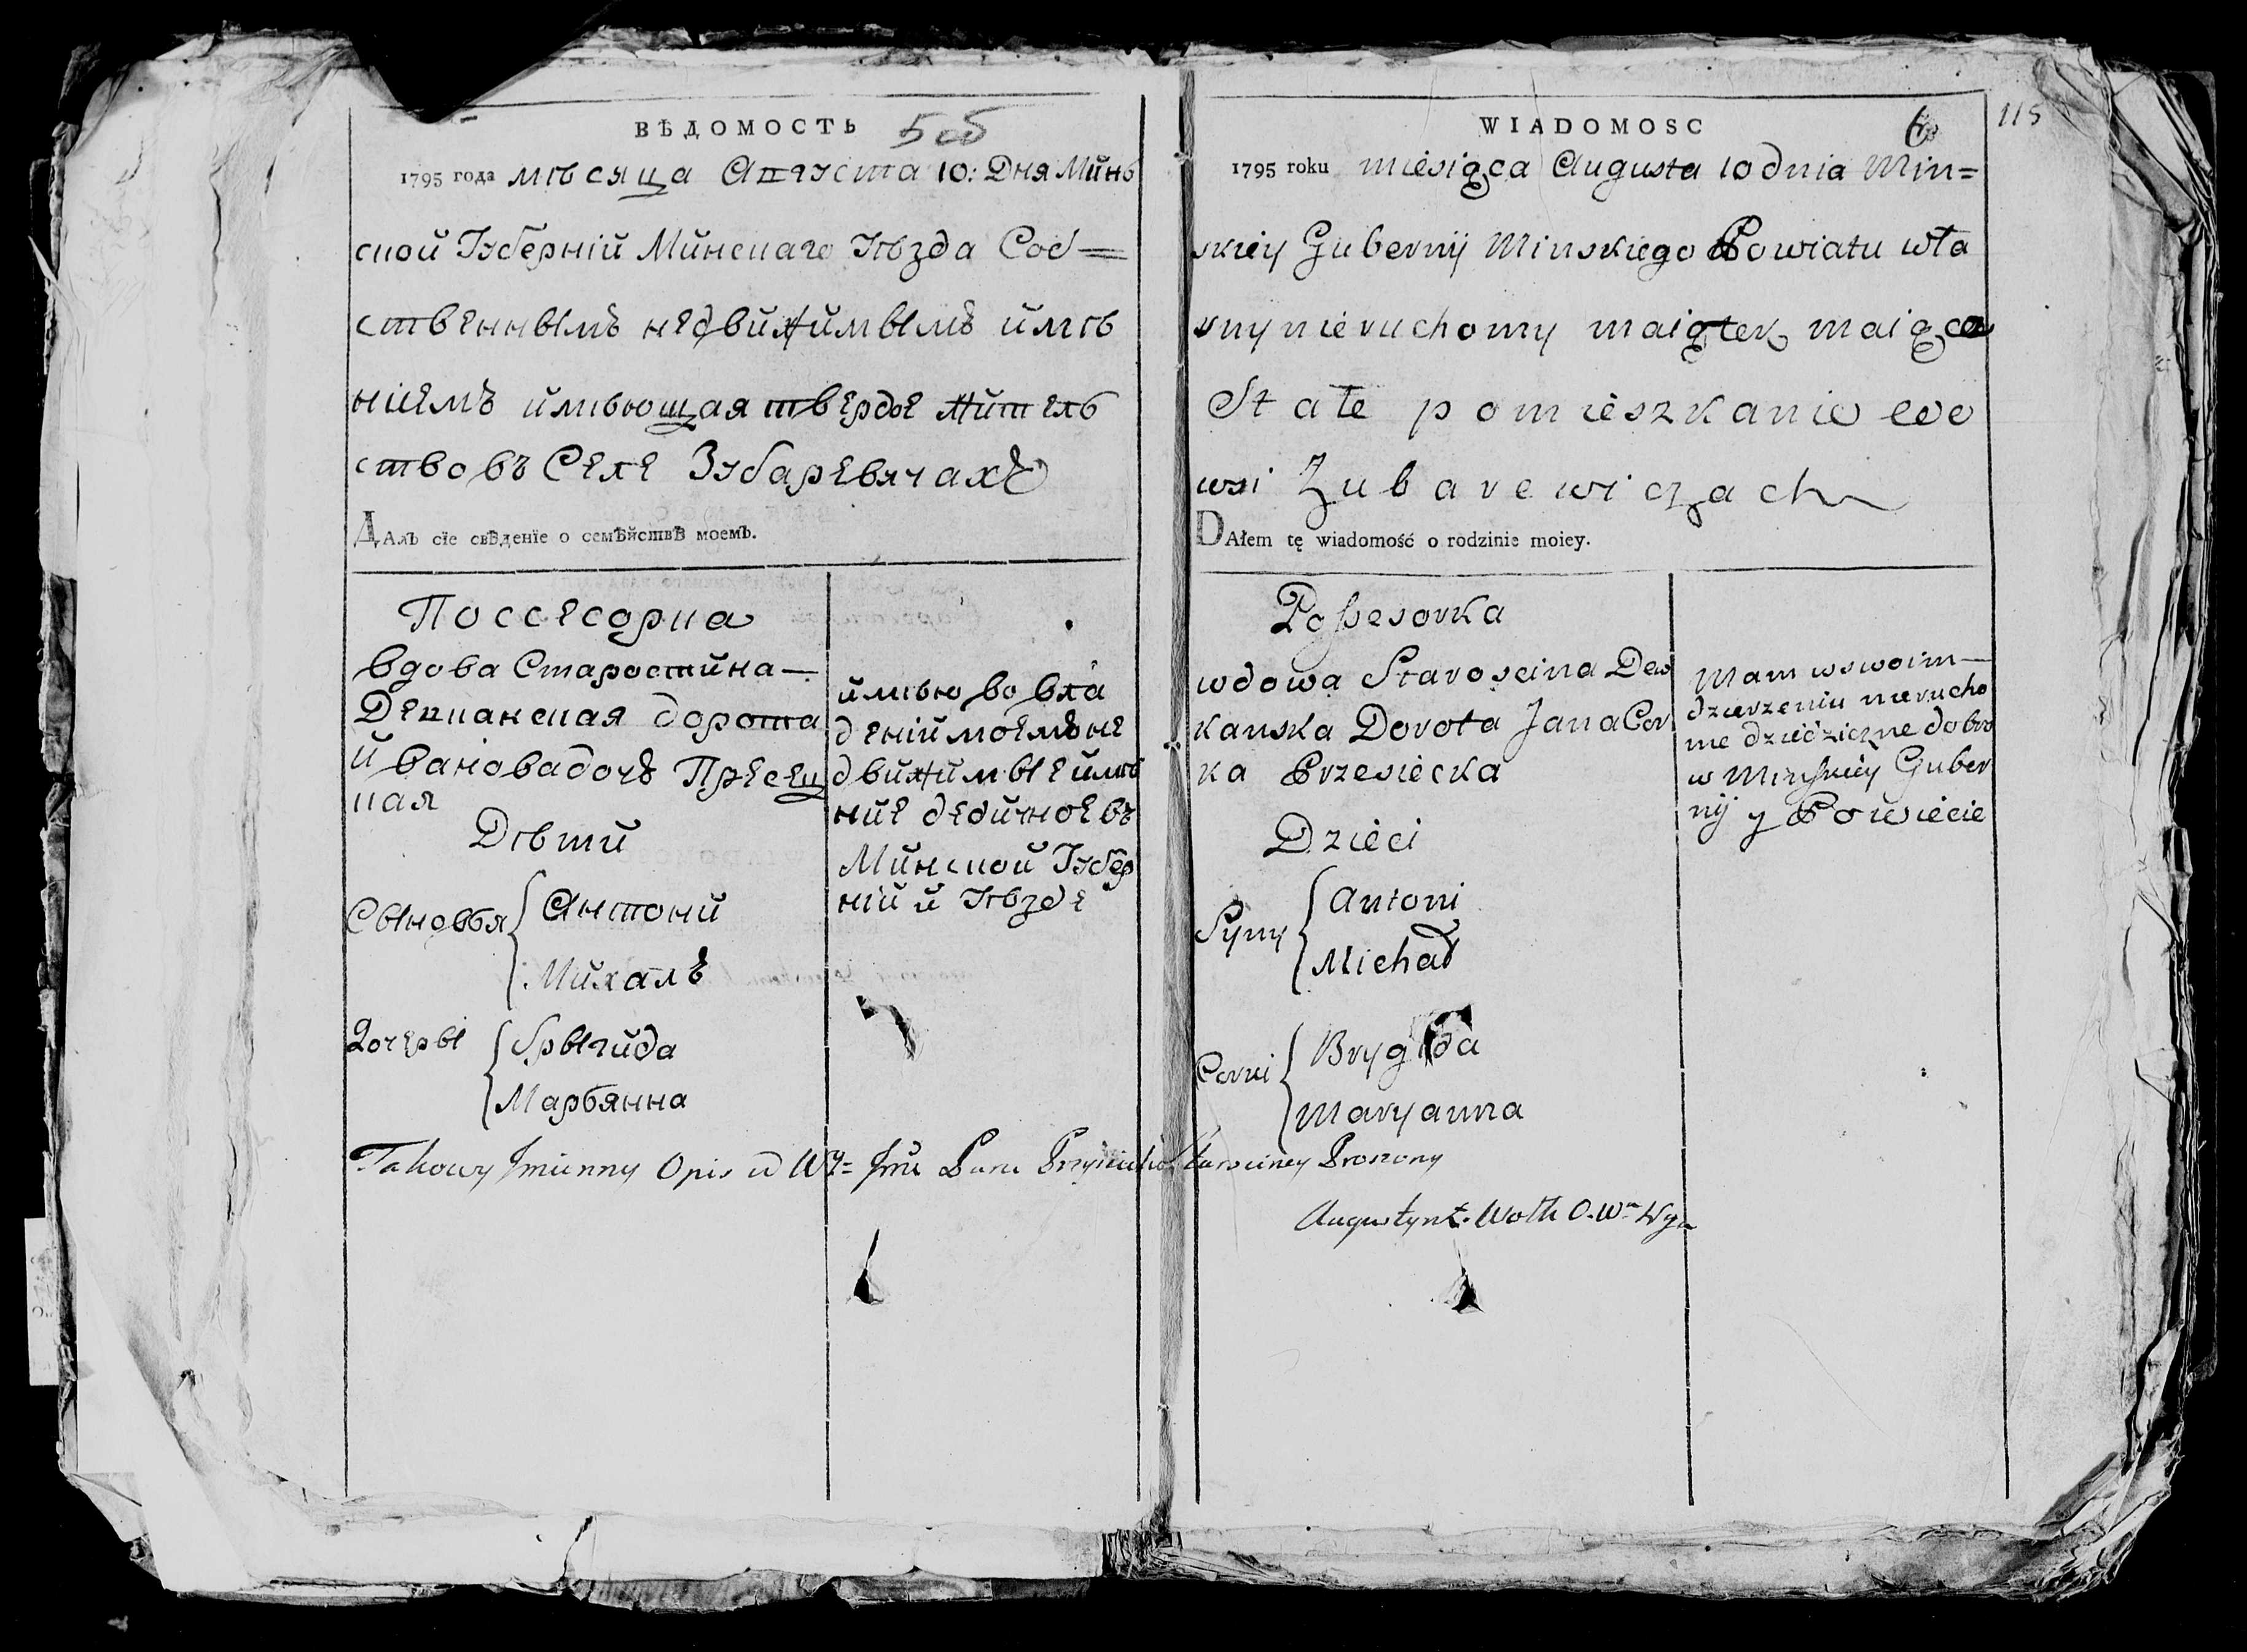 ВѢДОМОСТЬ 5 об
1795 года мѣсяца Августа 10: Дня Минь
ской Губерніи Минскаго Уѣзда Соб=
ственнымъ недвижимымъ имѣ
ніемъ имѣющая твердое житель
ство въ Селе Зубаревичахъ
Далъ сїе свѣденїе о семѣйствѣ моемъ.
Поссесорка
вдова Старостина
Декканская дорота
Иванова дочъ Пресец
кая
Дѣти
Сыновья Антони
Михалъ
Дочеры Брыгида
Марьянна
имѣю во вла
дении моемъ не
движимые имѣ
ние дедичное въ
Минской Губер
нии и Уѣзде
WIADOMOSC 6 115
1795 roku miesiąca Augusta 10 dnia Min=
skiey Gubernij Minskiego Powiatu wła
sny nieruchomy maiątek maiąca
Stałe pomieszkanie we
wsi Zubarewiczach
DAłem tę wiadomość o rodzinie moiey.
Possesorka
wdowa Staroscina Dek
kanska Dorota Jana Cor
ka Przesiecka
Dzieci
Syny Antoni
Michał
Corki Brygida
Maryanna
Mam w swoim
dzierzeniu nierucho
me dziedziczne dobro
w Minskiey Guber
nij y Powiecie
Takowy Imienny Opis Proszony